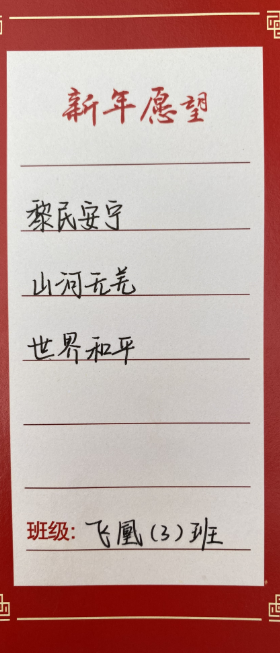 新年愿望
黎民安宁
山河无恙
世界和平
班级: 飞凰(3)班